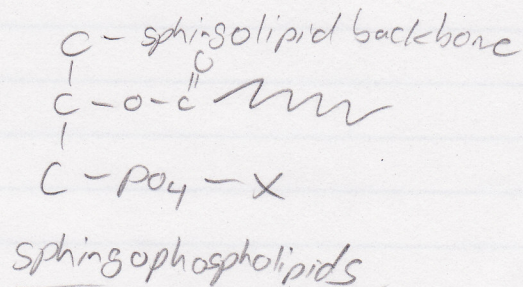 C - sphingolipid backbone
O
C - O - C
C - PO4 - X
sphingophospholipids